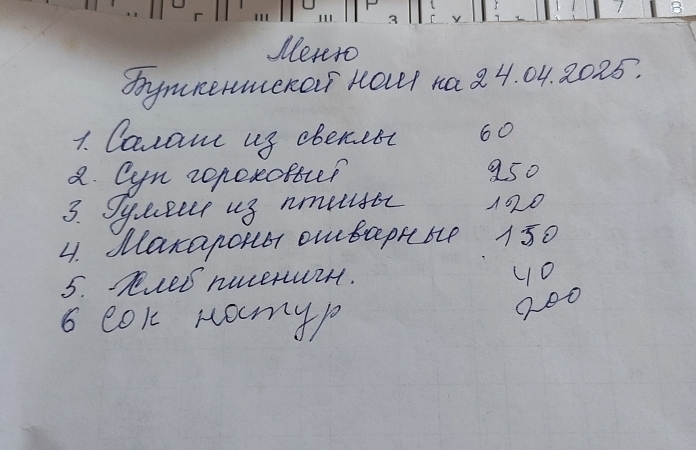 Меню
Буткентской нош на 24.04.2025.
1. Салат из свеклы 60
2. Суп гороховый 250
3. Гуляш из птицы 120
4. Макароны отварные 150
5. Хлеб пшеничн. 40
6 Сок натур 200